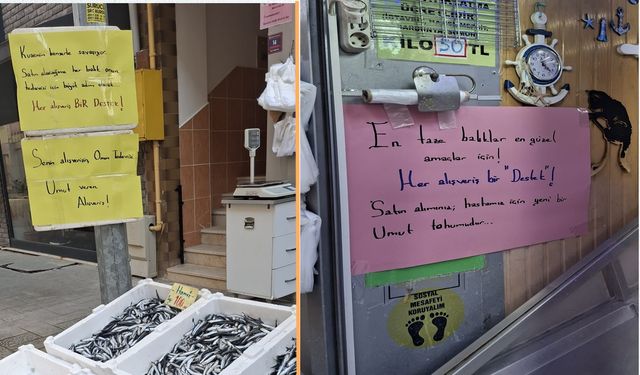 Kuzenim kanserle savaşıyor.
Satın alacağınız her balık onun
tedavisi için büyük adım olacak
Her alışveriş BİR DESTEK!
Senin alışverişin Onun Tedavisi
Umut veren
Alışveriş!
Hamsi
100
KİLO 50 TL
En taze balıklar en güzel
amaçlar için!
Her alışveriş bir "Destek"!
Satın alımınız; hastamız için yeni bir
Umut tohumudur...
SOSYAL
MESAFEYİ
KORUYALIM